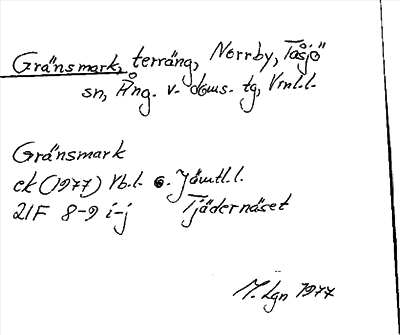 Gränsmark, terräng, Norrby, Tåsjö
sn, Ång. v. doms. tg, Vml.l.
Gränsmark
ek (1977) Vb.l. o. Jämtl.l.
21F 8-9 i-j Tjädernäset
M. Lgn 1977